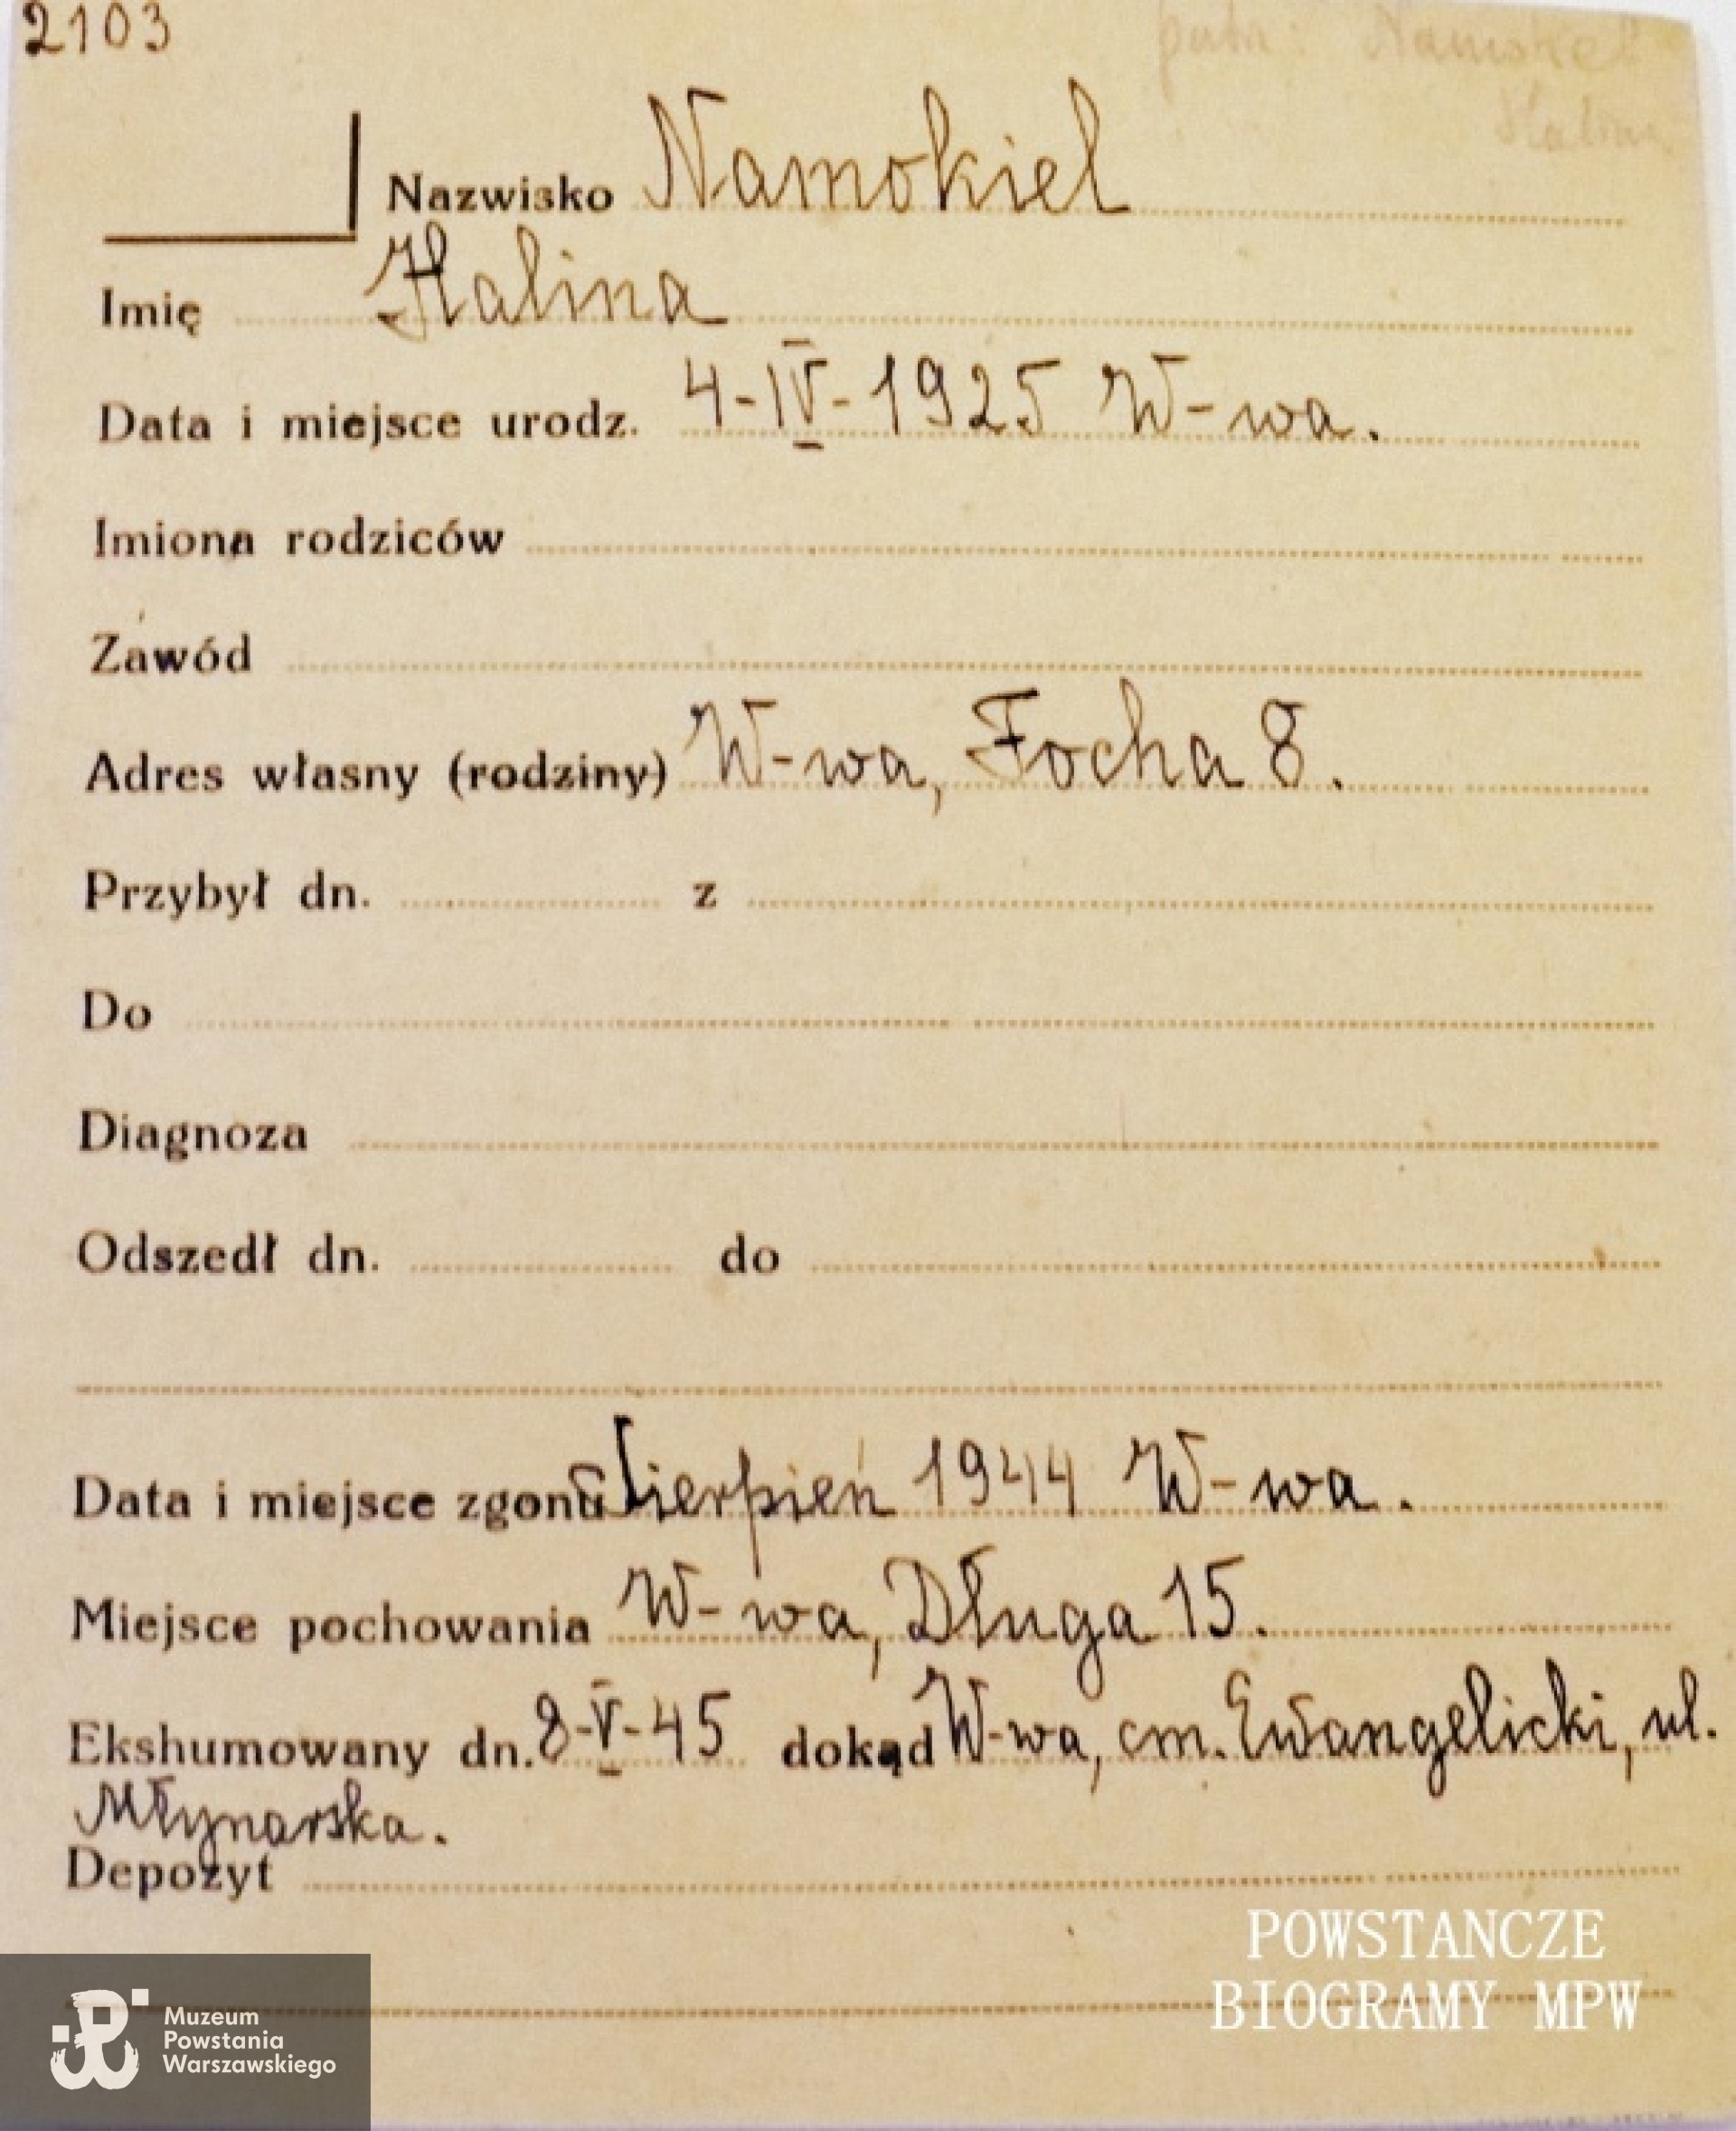 2103
Namokiel
Halina
Nazwisko Namokiel
Imię Halina
Data i miejsce urodz. 4-IV-1925 W-wa.
Imiona rodziców
Zawód
Adres własny (rodziny) W-wa, Focha 8.
Przybył dn. z
Do
Diagnoza
Odszedł dn. do
Data i miejsce zgonu Sierpień 1944 W-wa.
Miejsce pochowania W-wa, Długa 15.
Ekshumowany dn. 8-V-45 dokąd W-wa, cm. Ewangelicki, ul.
Młynarska.
Depozyt
POWSTANCZE
BIOGRAMY MPW
Muzeum
Powstania
Warszawskiego